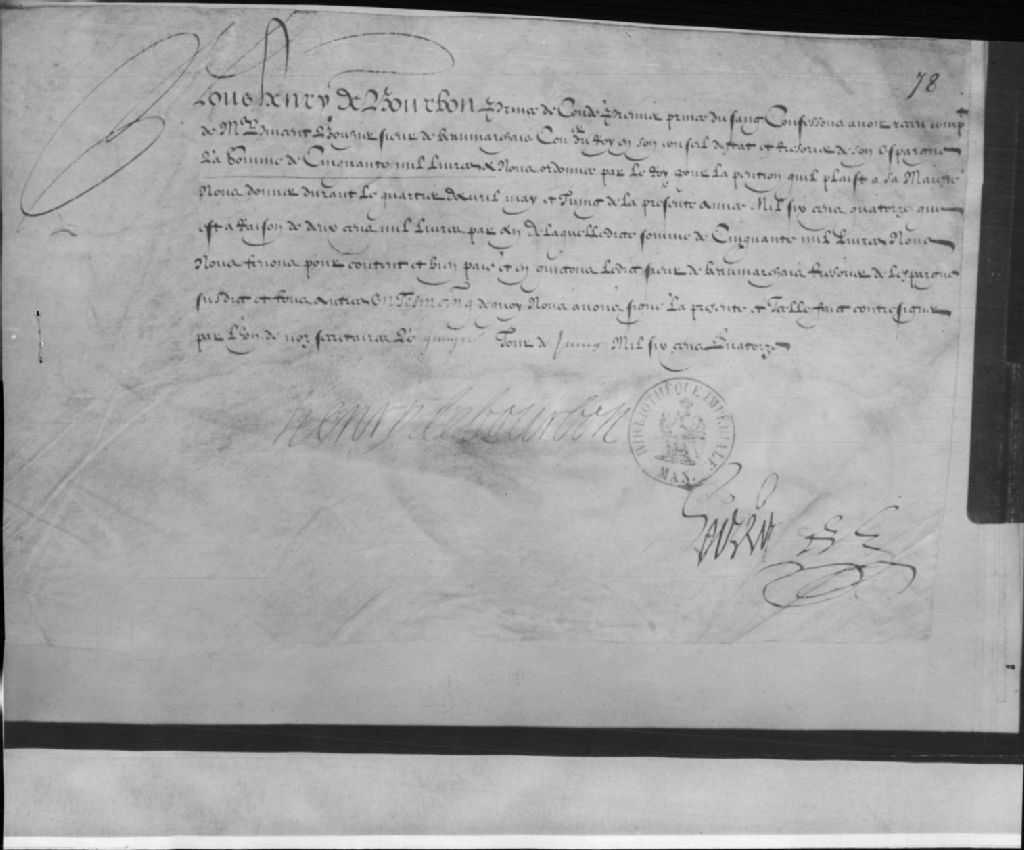 78
Nous Henry de Bourbon Prince de Condé Premier prince du sang Confessons avoir receu comp^t
de M^e Vincent Bouhier sieur de beaumarchais Con^er du Roy en son conseil destat et tresorier de son Espargne
La Somme de Cinquante mil livres a Nous ordonnee par le Roy pour la pention quil plaist a sa Maiesté
Nous donner durant le quartier davril may et Juing de la presente annee Mil six cens quatorze qui
est a Raison de deux cens mil livres par an de laquelle dicte somme de Cinquante mil livres Nous
Nous tenons pour content et bien paié et en quictons ledict sieur de beaumarchais tresorier de lespargne
susdict et tous autres En Tesmoing de quoy Nous avons signé la presente et Icelle faict contresigner
par l'un de noz secretaires Le Jour de Juing Mil six cens Quatorze
henry de bourbon
BIBLIOTHÈQUE IMPÉRIALE
MAN.